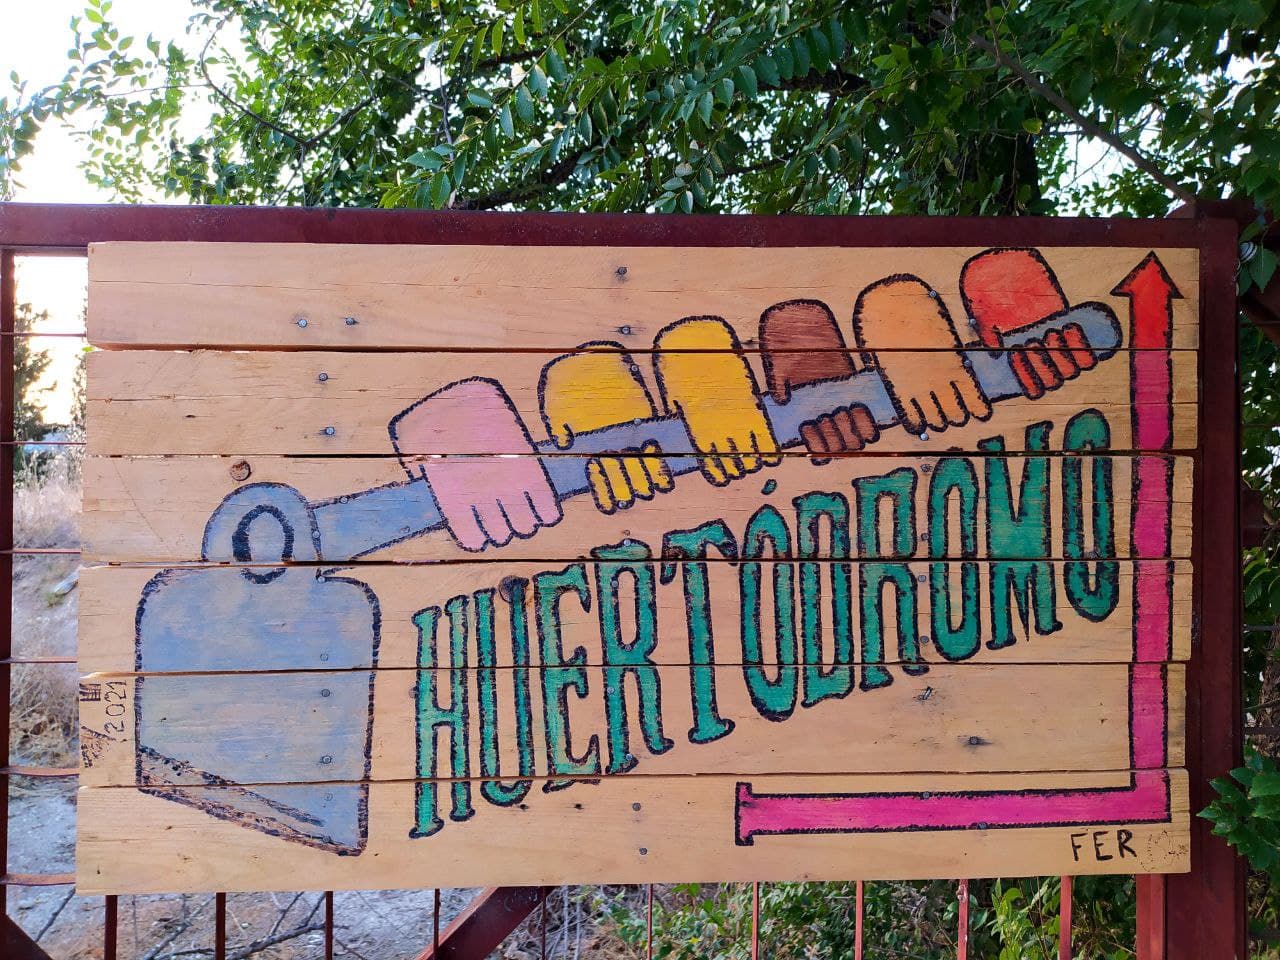 HUERTÓDROMO
2021
FER